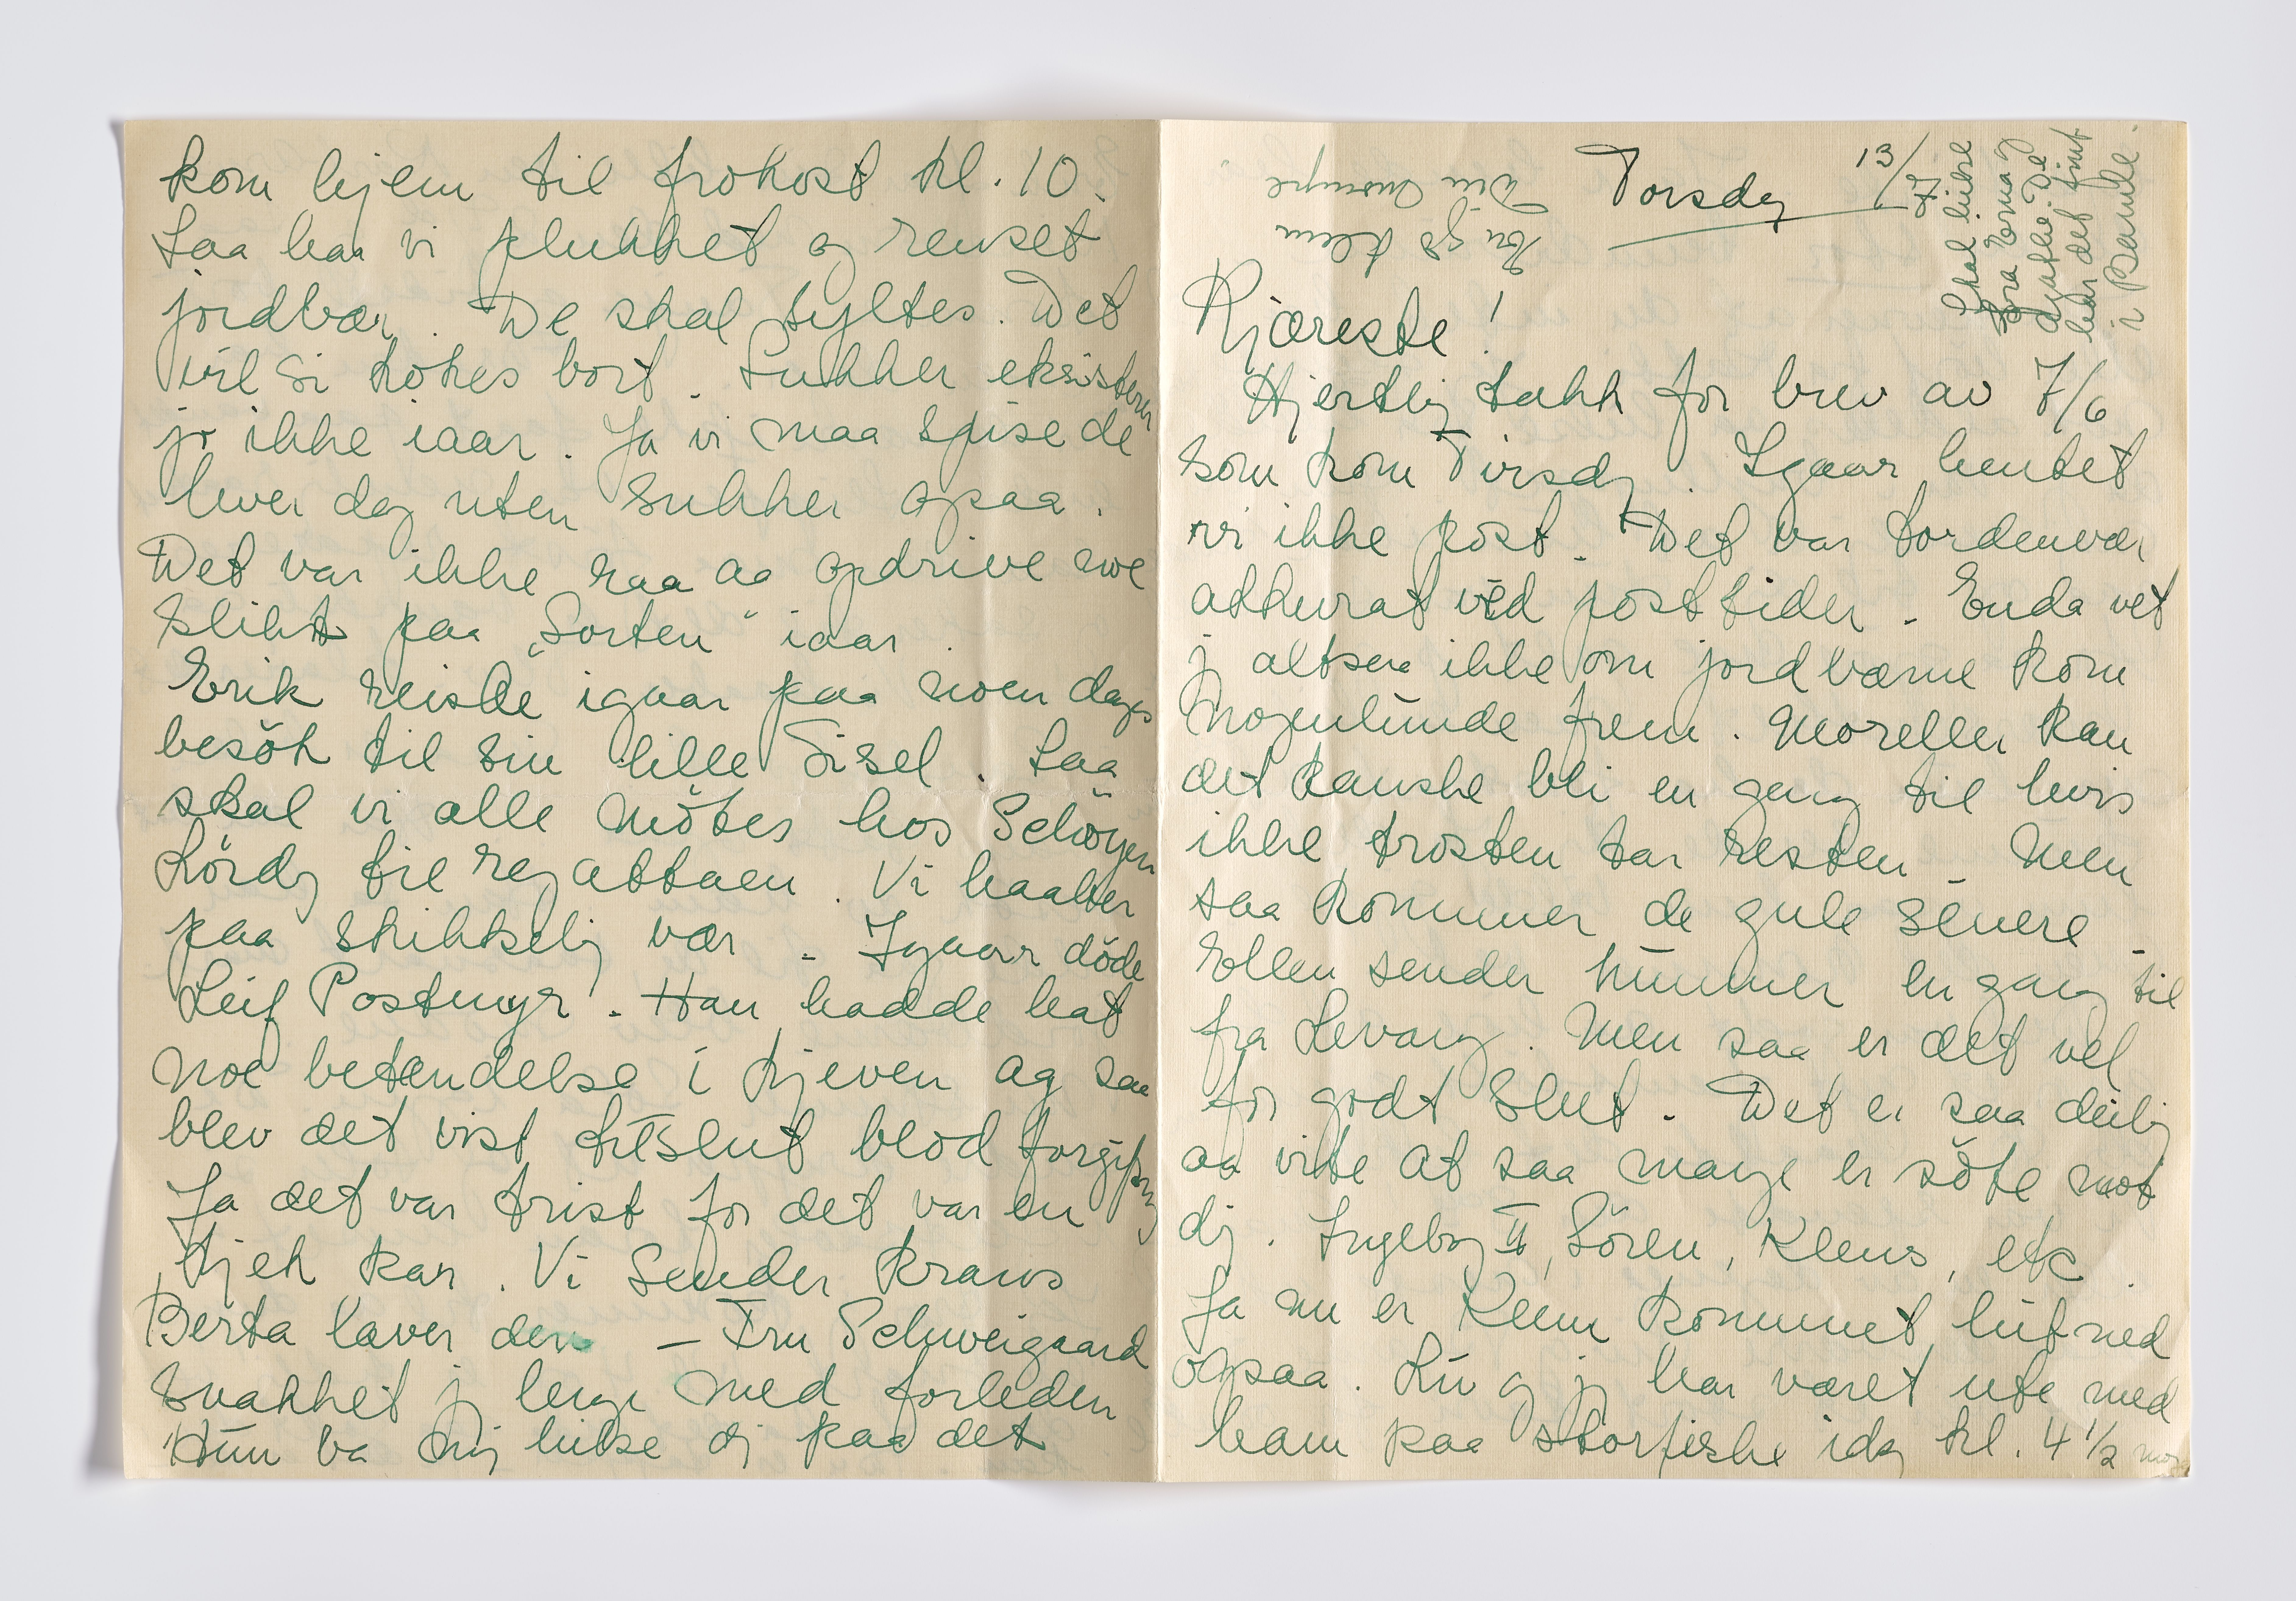 Torsdag 13/7
Kjæreste!
Hjertlig takk for brev av 7/6
som kom Tirsdg. Igaar hentet
vi ikke post. Det var tordenvær
akkurat ved posttiden. Enda vet
jg altsaa ikke om jordbærne kom
nogenlunde frem. Moreller kan
det kanske bli en gang til hvis
ikke trosten tar resten. Men
saa kommer de gule senere.
Ellen sender hummer en gang til
fra Levang. Men saa er det vel
for godt slut. Det er saa deilig
aa vite at saa mange er söte mot
dig. Ingeborg II, Sören, Klems, etc.
Ja nu er Klem kommet hit ned
ogsaa. Liv og jg har været ute med
ham paa storfiske idag kl. 4 1/2 mor
kom hjem til frokost kl. 10.
Saa har vi plukket og renset
jordbær. De skal syltes. Det
vil si kokes bort. Sukker eksisterer
jo ikke iaar. Ja vi maa spise de
hver dag uten sukker opaa.
Det var ikke raa aa opdrive noe
slikt paa „Sorten" iaar.
Erik reiste igaar paa noen dages
besök til sin lille Sisel. Saa
skal vi alle mötes hos Schöyen
Lördg til regattaen. Vi haaber
paa skikkelig vær. Igaar döde
Leif Postmyr. Han hadde hat
noe betendelse i kjeven og saa
blev det vist tilslut blod forgiftning
Ja det var trist for det var en
kjek kar. Vi sender krans
Berta laver den – Fru Schweigaard
snakket jg lenge med forleden
Hun ba mig hilse dg paa det
Skal hilse
fra Erna og
Agathe. De
har det fint
i Bamble.
En go klem
Din